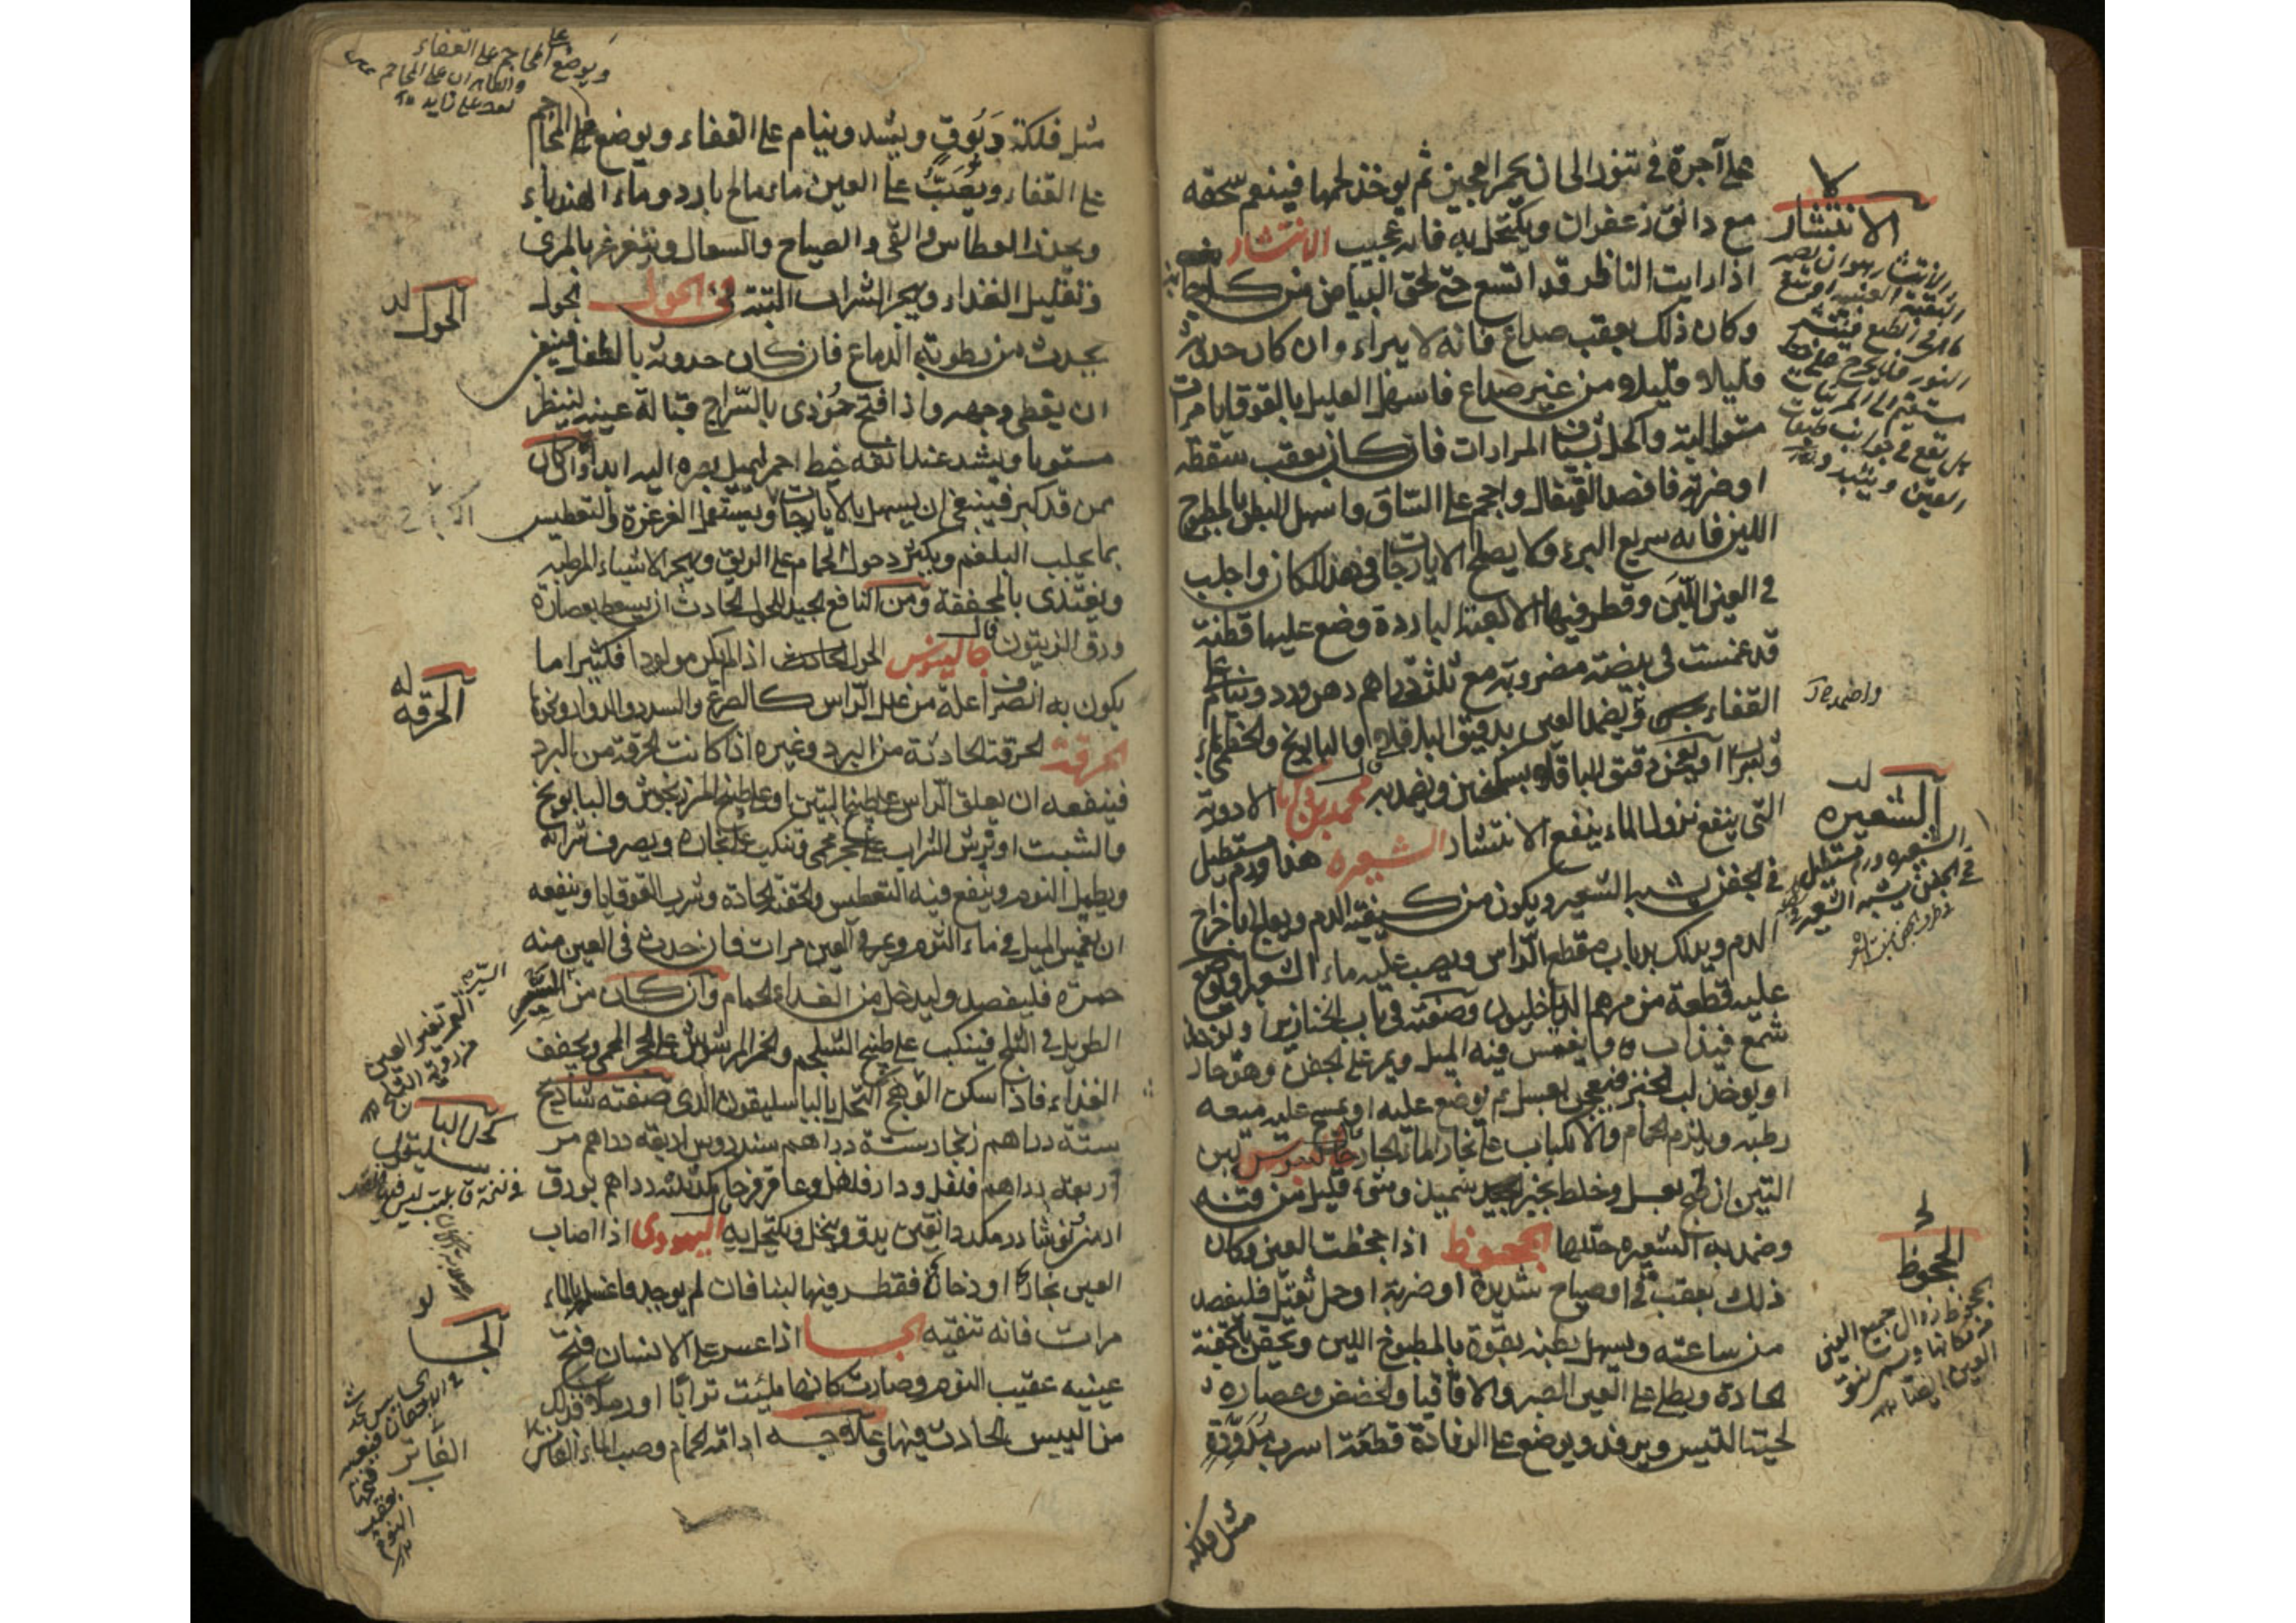 على آجرة فى تنور الى ان يحمر العجين ثم يوخذ لحمها فينعم سحقه
مع دانق زعفران ويكتحل به فانه عجيب الانتشار
اذا رايت الناظر قد اتسع حتى لحق البياض من كل جانب
وكان ذلك بعقب صداع فانه لا يبراء وان كان حدوثه
قليلا قليلا من غير صداع فاسهل العليل بالقوقايا مرات
متوالية واكحله بشياف المرارات فان كان بعقب سقطة
او ضربة فافصد القيفال واحجم على الساق واسهل البطن بالمطبوخ
اللين فانه سريع البرء ولا يصلح الايارجات فى هذا المكان واحلب
فى العين اللبن وقطر فيها الالعبة الباردة وضع عليها قطنة
قد غمست فى بيضة مضروبة مع ثلثة دراهم دهن ورد وينام على
القفاء ويضمد العين بدقيق الباقلى والبابونج والخطمى
او يعجن دقيق الباقلا بسكنجبين ويضمد به قال محمد بن زكريا الادوية
التى ينفع نزول الماء ينفع الانتشار الشعيره هذا ورم مستطيل
فى الجفن يشبه الشعير ويكون من كيفية الدم ويعالج باخراج
الدم ويدلك بذباب مقطع الراس ويصب عليه ماء الشعير ويوضع
عليه قطعة من مرهم الداخليون وصفته فى باب الخنازير ويوخذ
شمع فيذاب ويغمس فيه الميل ويمر على الجفن وهو حار
او يوخذ لب الخبز فيعجن بعسل ثم يوضع عليه او يمسح عليه ميعه
رطبه ويلزم الحمام والانكباب على بخار الماء الحار جالينوس لبن
التين ان طبخ بعسل وخلط بخبز سميذ وشىء قليل من قنه
وضمد به الشعيره حللها الجحوظ اذا جحظت العين وكان
ذلك بعقب قى او صياح شديدة او ضربة او حمل ثقيل فليفصد
من ساعته ويسهل بطنه بقوة بالمطبوخ اللين ويحقن بالحقنة
الحادة ويطلى على العين الصبر والاقاقيا والحضض وعصارة
لحية التيس ويرفد ويوضع على الرفادة قطعة اسرب مدورة
مثل فلكه
الانتشار
واضمده
الشعيره
الشعيره ورم مستطيل
فى الجفن يشبه الشعير
الجحوظ
الجحوظ زوال جميع العين
من مكانها
مثل فلكة دَبُوقٍ ويشد وينام على القفاء ويوضع المحاجم
على القفاء ويُصَبُّ على العين ماء مالح بارد وماء الهندباء
ويحذر العطاس والقى والصياح والسعال ويتغرغر بالمرى
وتقليل الغذاء ويهجر الشراب البتة فى الحول الحول
يحدث من رطوبة الدماغ فان كان حدوثه بالطفل فينبغى
ان يغطى وجهه واذا فتح حُوذى بالسراج قبالة عينيه لينظر
مستويا ويشد عند انفه خيط احمر ليميل بصره اليه ابدا وان كان
ممن قد كبر فينبغى ان يسهل بالايارجات ويستعمل الغرغرة والتعطيس
بما يجلب البلغم ويكثر دخول الحمام على الريق ويهجر الاشياء المرطبه
ويغتذى بالمجففة ومن النافع الجيد للحول الحادث ان يسعط بعصارة
ورق الزيتون قال جالينوس الحول الحادث اذا لم يكن مولودا فكثيرا ما
يكون به انصراعلة من علل الراس كالصرع والسدر والدوار ونحوها
الحرقة الحرقة الحادثة من البرد وغيره اذا كانت الحرقة من البرد
فينفعه ان يعلق الراس على طبيخ التين او على طبيخ المرزنجوش والبابونج
والشبت او يرش الشراب على حجر محمى وينكب على بخاره ويصرف شرابه
ويطيل النوم وينفع فيه التعطيس والحقنة الحادة وشرب القوقايا وينفعه
ان يغمس الميل فى ماء الثوم ويمر فى العين مرات فان حدث فى العين منه
حمرة فليفصد وليدخل من الغد الحمام وان كان من السَّيْر
الطويل فى الثلج فينكب على طبيخ الشلجم والخمر المرشوش على الحجر المحمى ويخفف
الغذاء فاذا سكن الوهج اكتحل بالباسليقون الذى صفته شاذنج
ستة دراهم زنجار ستة دراهم سندروس اربعة دراهم مر
اربعة دراهم فلفل ودار فلفل وعاقرقرحا مكد ثلثة دراهم بورق
ارمنى نوشادر مكد دانقين يدق وينخل ويكتحل به قال اليهودى اذا اصاب
العين بخار او دخان فقطر فيها لبنا فان لم يوجد فاغسلها بالماء
مرات فانه تنقيه الجسا اذا عسر على الانسان فتح
عينيه عقيب النوم وصارت كانها مليئت ترابا او رملا فذلك
من اليبس الحادث فيها وعلاجه ادامة الحمام وصب الماء الفاتر
ويوضع المحاجم على القفاء
الحول
الحرقه
كحل البا
سليقون
الجسا
الفاتر